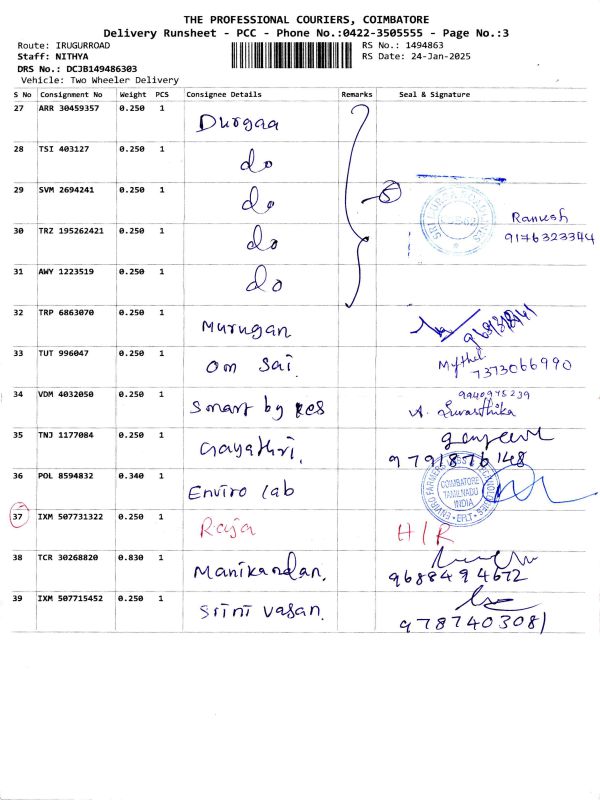 THE PROFESSIONAL COURIERS, COIMBATORE
Delivery Runsheet - PCC - Phone No.:0422-3505555 - Page No.:3
Route: IRUGURROAD RS No.: 1494863
Staff: NITHYA RS Date: 24-Jan-2025
DRS No.: DCJB149486303
Vehicle: Two Wheeler Delivery
S No Consignment No Weight PCS Consignee Details Remarks Seal & Signature
27 ARR 30459357 0.250 1 Durgaa
28 TSI 403127 0.250 1 do
29 SVM 2694241 0.250 1 do 5 Ramesh
30 TRZ 195262421 0.250 1 do 9176323344
31 AWY 1223519 0.250 1 do
32 TRP 6863070 0.250 1 Murugan
33 TUT 996047 0.250 1 Om Sai. 7373066990
34 VDM 4032050 0.250 1 Smart by 9940975239
35 TNJ 1177084 0.250 1 Gayathri. 9791876148
36 POL 8594832 0.340 1 Enviro lab COIMBATORE TAMILNADU INDIA
37 IXM 507731322 0.250 1 Raja H/R
38 TCR 30268820 0.830 1 Manikandan. 9688494672
39 IXM 507715452 0.250 1 Srini vasan. 9787403081